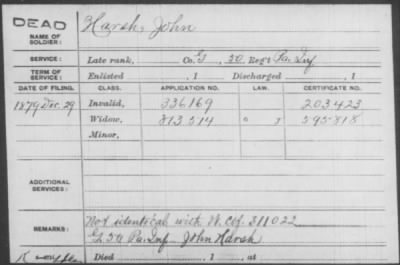 DEAD
NAME OF SOLDIER: Harsh, John
SERVICE: Late rank, Co. G, 50 Reg't Pa. Inf
TERM OF SERVICE: Enlisted , 1 Discharged , 1
DATE OF FILING. CLASS. APPLICATION NO. LAW. CERTIFICATE NO.
1879 Dec. 29 Invalid, 336169 203423
Widow, 813514 595818
Minor,
ADDITIONAL SERVICES:
REMARKS: Not identical with W. Ctf. 311022
G 50 Pa. Inf John Harsh
Died , 1 , at